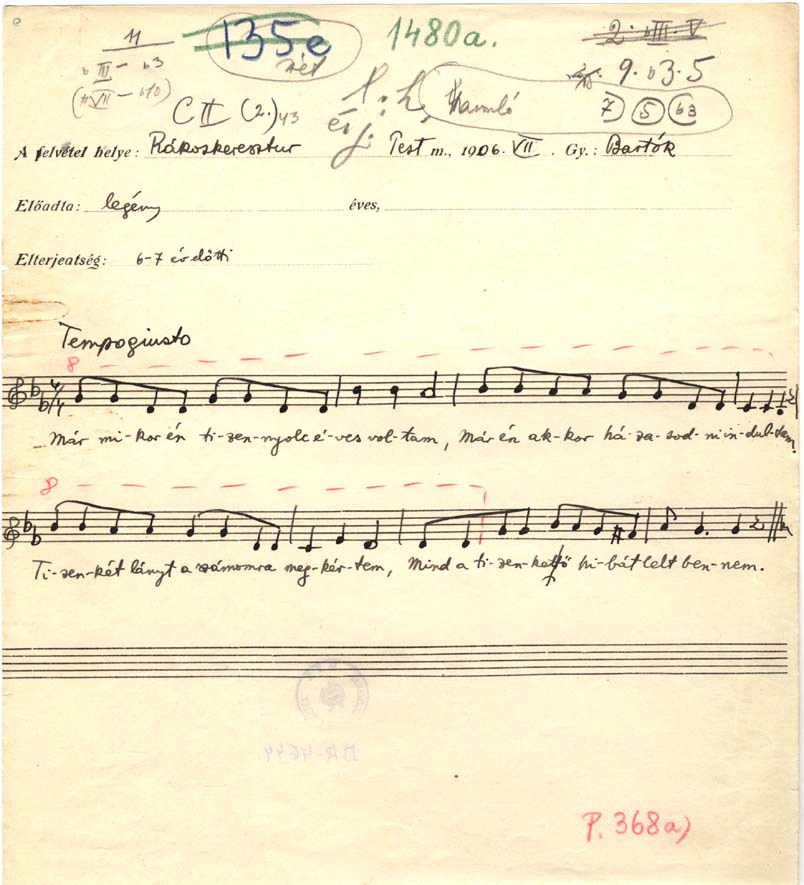 11 135e 1480a. 2. bIII. V
bIII – b3 9. b3. 5
(bVII – b10) 7 5 b3
C II (2.) 43
A felvétel helye: Rákoskeresztur Pest m., 1906. VII. Gy.: Bartók
Előadta: legény éves,
Elterjedtség: 6-7 év előtti
Tempo giusto
8
Már mi-kor én ti-zen-nyolc é-ves vol-tam, Már én ak-kor há-za-sod-ni in-dul-tam,
8
Ti-zen-két lányt a számomra meg-kér-tem, Mind a ti-zen-kettő hi-bát lelt ben-nem.
DR-4644
P. 368a)